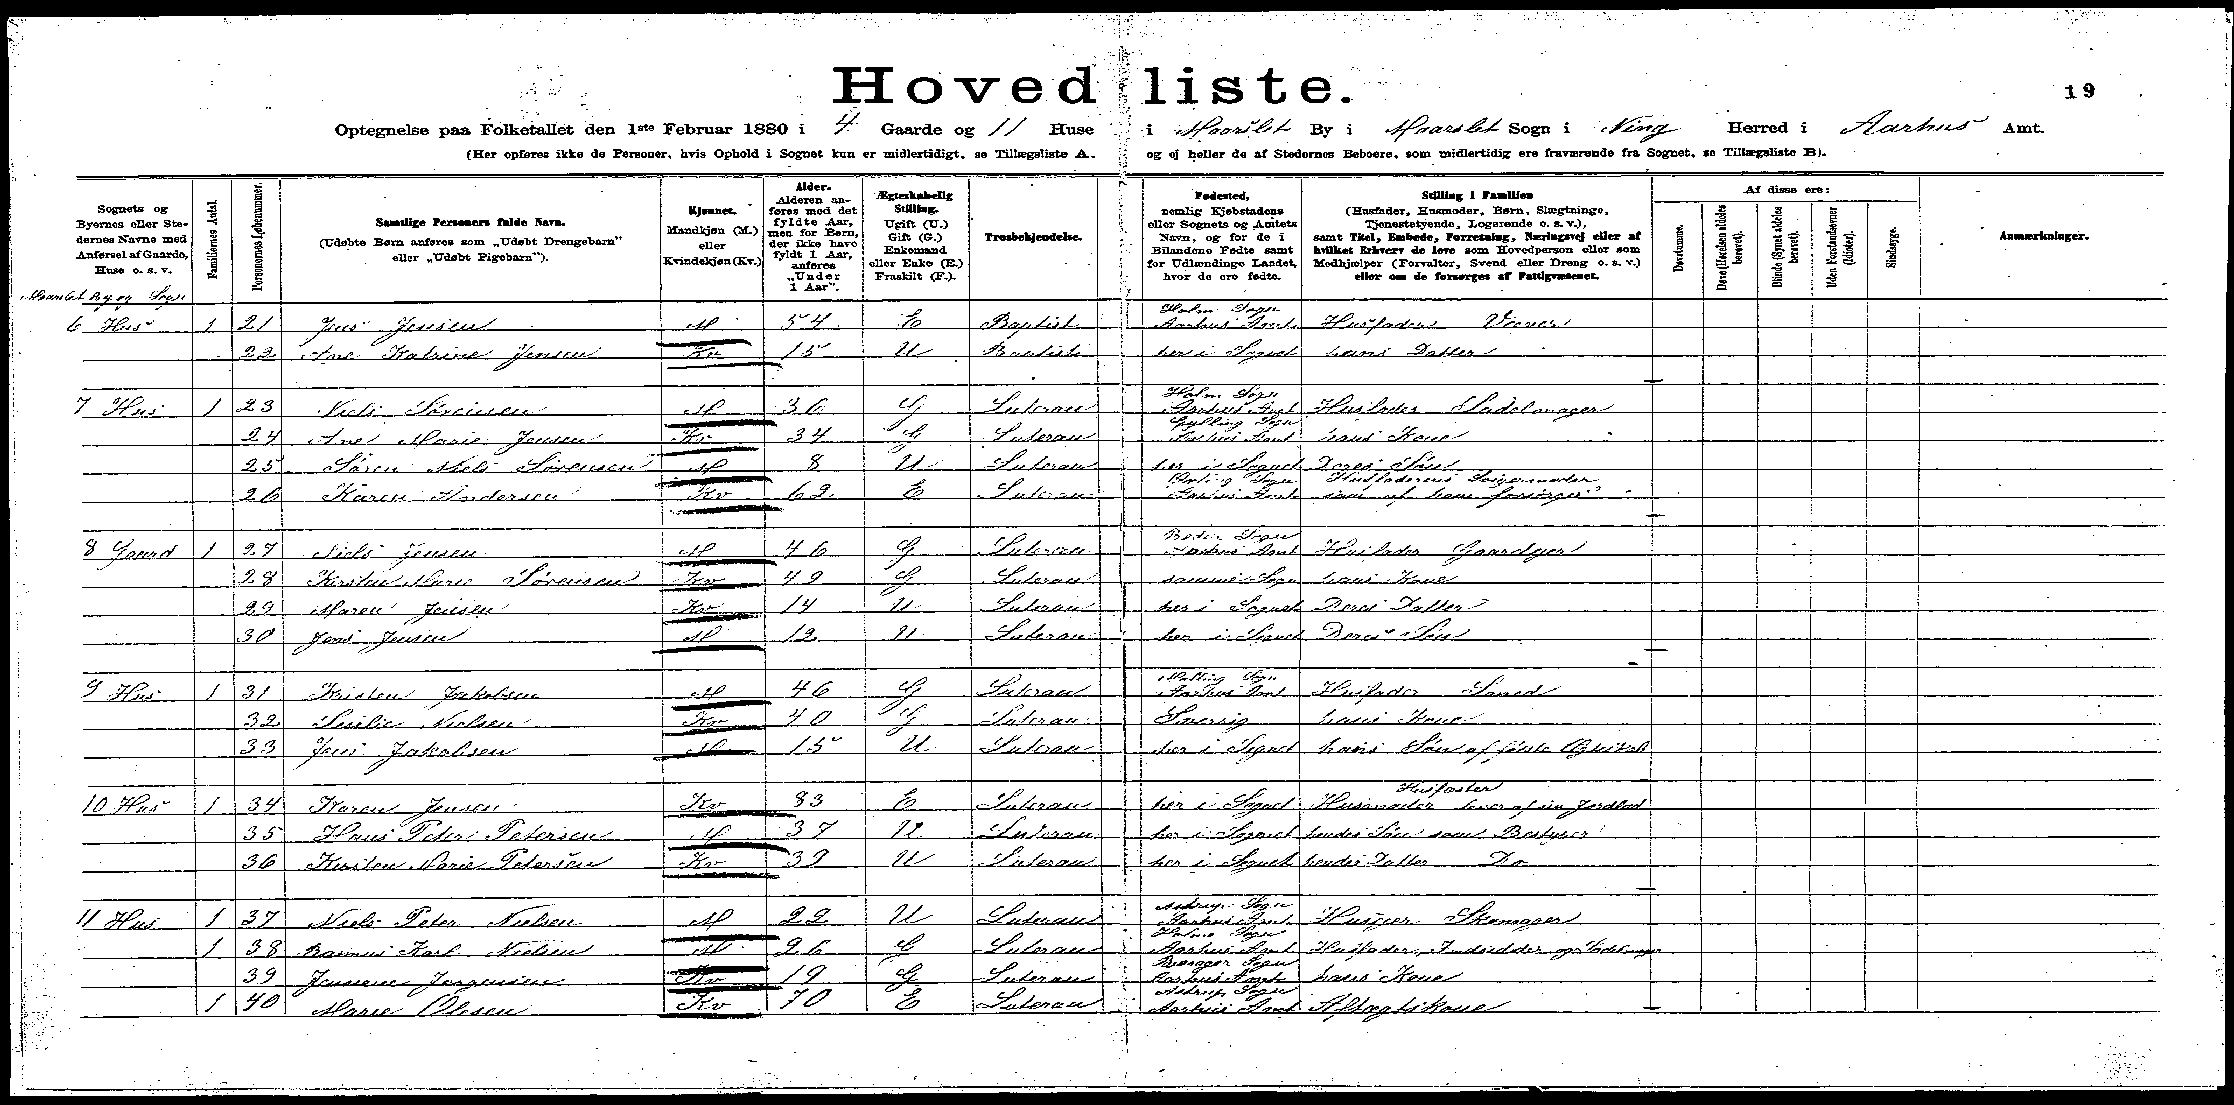 Hovedliste.
19
Optegnelse paa Folketallet den 1ste Februar 1880 i 4 Gaarde og 11 Huse i Maarslet By i Maarslet Sogn i Ning Herred i Aarhus Amt.
(Her opføres ikke de Personer, hvis Ophold i Sognet kun er midlertidigt, se Tillægsliste A. og ej heller de af Stedernes Beboere, som midlertidig ere fraværende fra Sognet, se Tillægsliste B).
Sognets og Byernes eller Stedernes Navne med Anførsel af Gaarde, Huse o. s. v.
Familiernes Antal.
Personernes Løbenummer.
Samtlige Personers fulde Navn.
(Udøbte Børn anføres som „Udøbt Drengebarn" eller „Udøbt Pigebarn").
Kjønnet.
Mandkjøn (M.) eller Kvindekjøn (Kv.)
Alder.
Alderen anføres med det fyldte Aar, men for Børn, der ikke have fyldt 1 Aar, anføres „Under 1 Aar".
Ægteskabelig Stilling.
Ugift (U.) Gift (G.) Enkemand eller Enke (E.) Fraskilt (F.).
Trosbekjendelse.
Fødested,
nemlig Kjøbstadens eller Sognets og Amtets Navn, og for de i Bilandene Fødte samt for Udlændinge Landet, hvor de ere fødte.
Stilling i Familien
(Husfader, Husmoder, Børn, Slægtninge, Tjenestetyende, Logerende o. s. v.),
samt Titel, Embede, Forretning, Næringsvej eller af hvilket Erhverv de leve, som Hovedperson eller som Medhjælper (Forvalter, Svend eller Dreng o. s. v.) eller om de forsørges af Fattigvæsenet.
Af disse ere:
Døvstumme.
Døve (Hørelsen aldeles berøvet).
Blinde (Synet aldeles berøvet).
Uden Forstandsevner (Idioter).
Sindssyge.
Anmærkninger.
Maarslet By og Sogn
6 Hus 1 21 Jens Jensen M 54 E Baptist Holm Sogn Aarhus Amt Husfader Væver
22 Ane Katrine Jensen Kv 15 U Baptist her i Sognet hans Datter
7 Hus 1 23 Niels Sørensen M 36 G Luteran Holm Sogn Aarhus Amt Husfader Sadelmager
24 Ane Marie Jensen Kv 34 G Luteran Aarhus Amt hans Kone
25 Søren Niels Sørensen M 8 U Luteran her i Sognet Deres Søn
26 Karen Andersen Kv 62 E Luteran Sogn Aarhus Amt Husfaderens Svigermoder som af ham forsørges
8 Gaard 1 27 Niels Jensen M 46 G Luteran Beder Sogn Aarhus Amt Husfader Gaardejer
28 Kirsten Marie Sørensen Kv 49 G Luteran samme Sogn hans Kone
29 Maren Jensen Kv 14 U Luteran her i Sognet Deres Datter
30 Jens Jensen M 12 U Luteran her i Sognet Deres Søn
9 Hus 1 31 Kristen Jakobsen M 46 G Luteran Malling Sogn Aarhus Amt Husfader Smed
32 Nielsen Kv 40 G Luteran Sverrig hans Kone
33 Jens Jakobsen M 15 U Luteran her i Sognet hans Søn af første Ægteskab
10 Hus 1 34 Karen Jensen Kv 83 E Luteran her i Sognet Husmoder Husfæster lever af sin Jordlod
35 Hans Peter Petersen M 37 U Luteran her i Sognet hendes Søn som Bestyrer
36 Kirsten Marie Petersen Kv 39 U Luteran her i Sognet hendes Datter Do
11 Hus 1 37 Niels Peter Nielsen M 22 U Luteran Astrup Sogn Aarhus Amt Husejer Skomager
1 38 Rasmus Karl Nielsen M 26 G Luteran Holme Sogn Aarhus Amt Husfader, Indsidder og Sadelmager
39 Jensine Jørgensen Kv 19 G Luteran Sogn Aarhus Amt hans Kone
1 40 Marie Olesen Kv 70 E Luteran Astrup Sogn Aarhus Amt Aftægtskone